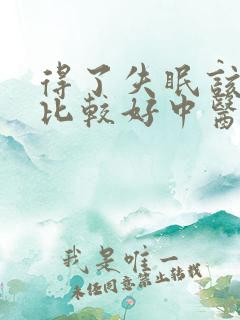 得了失眠該
比較好中醫
我是唯一
未经同意禁止转载